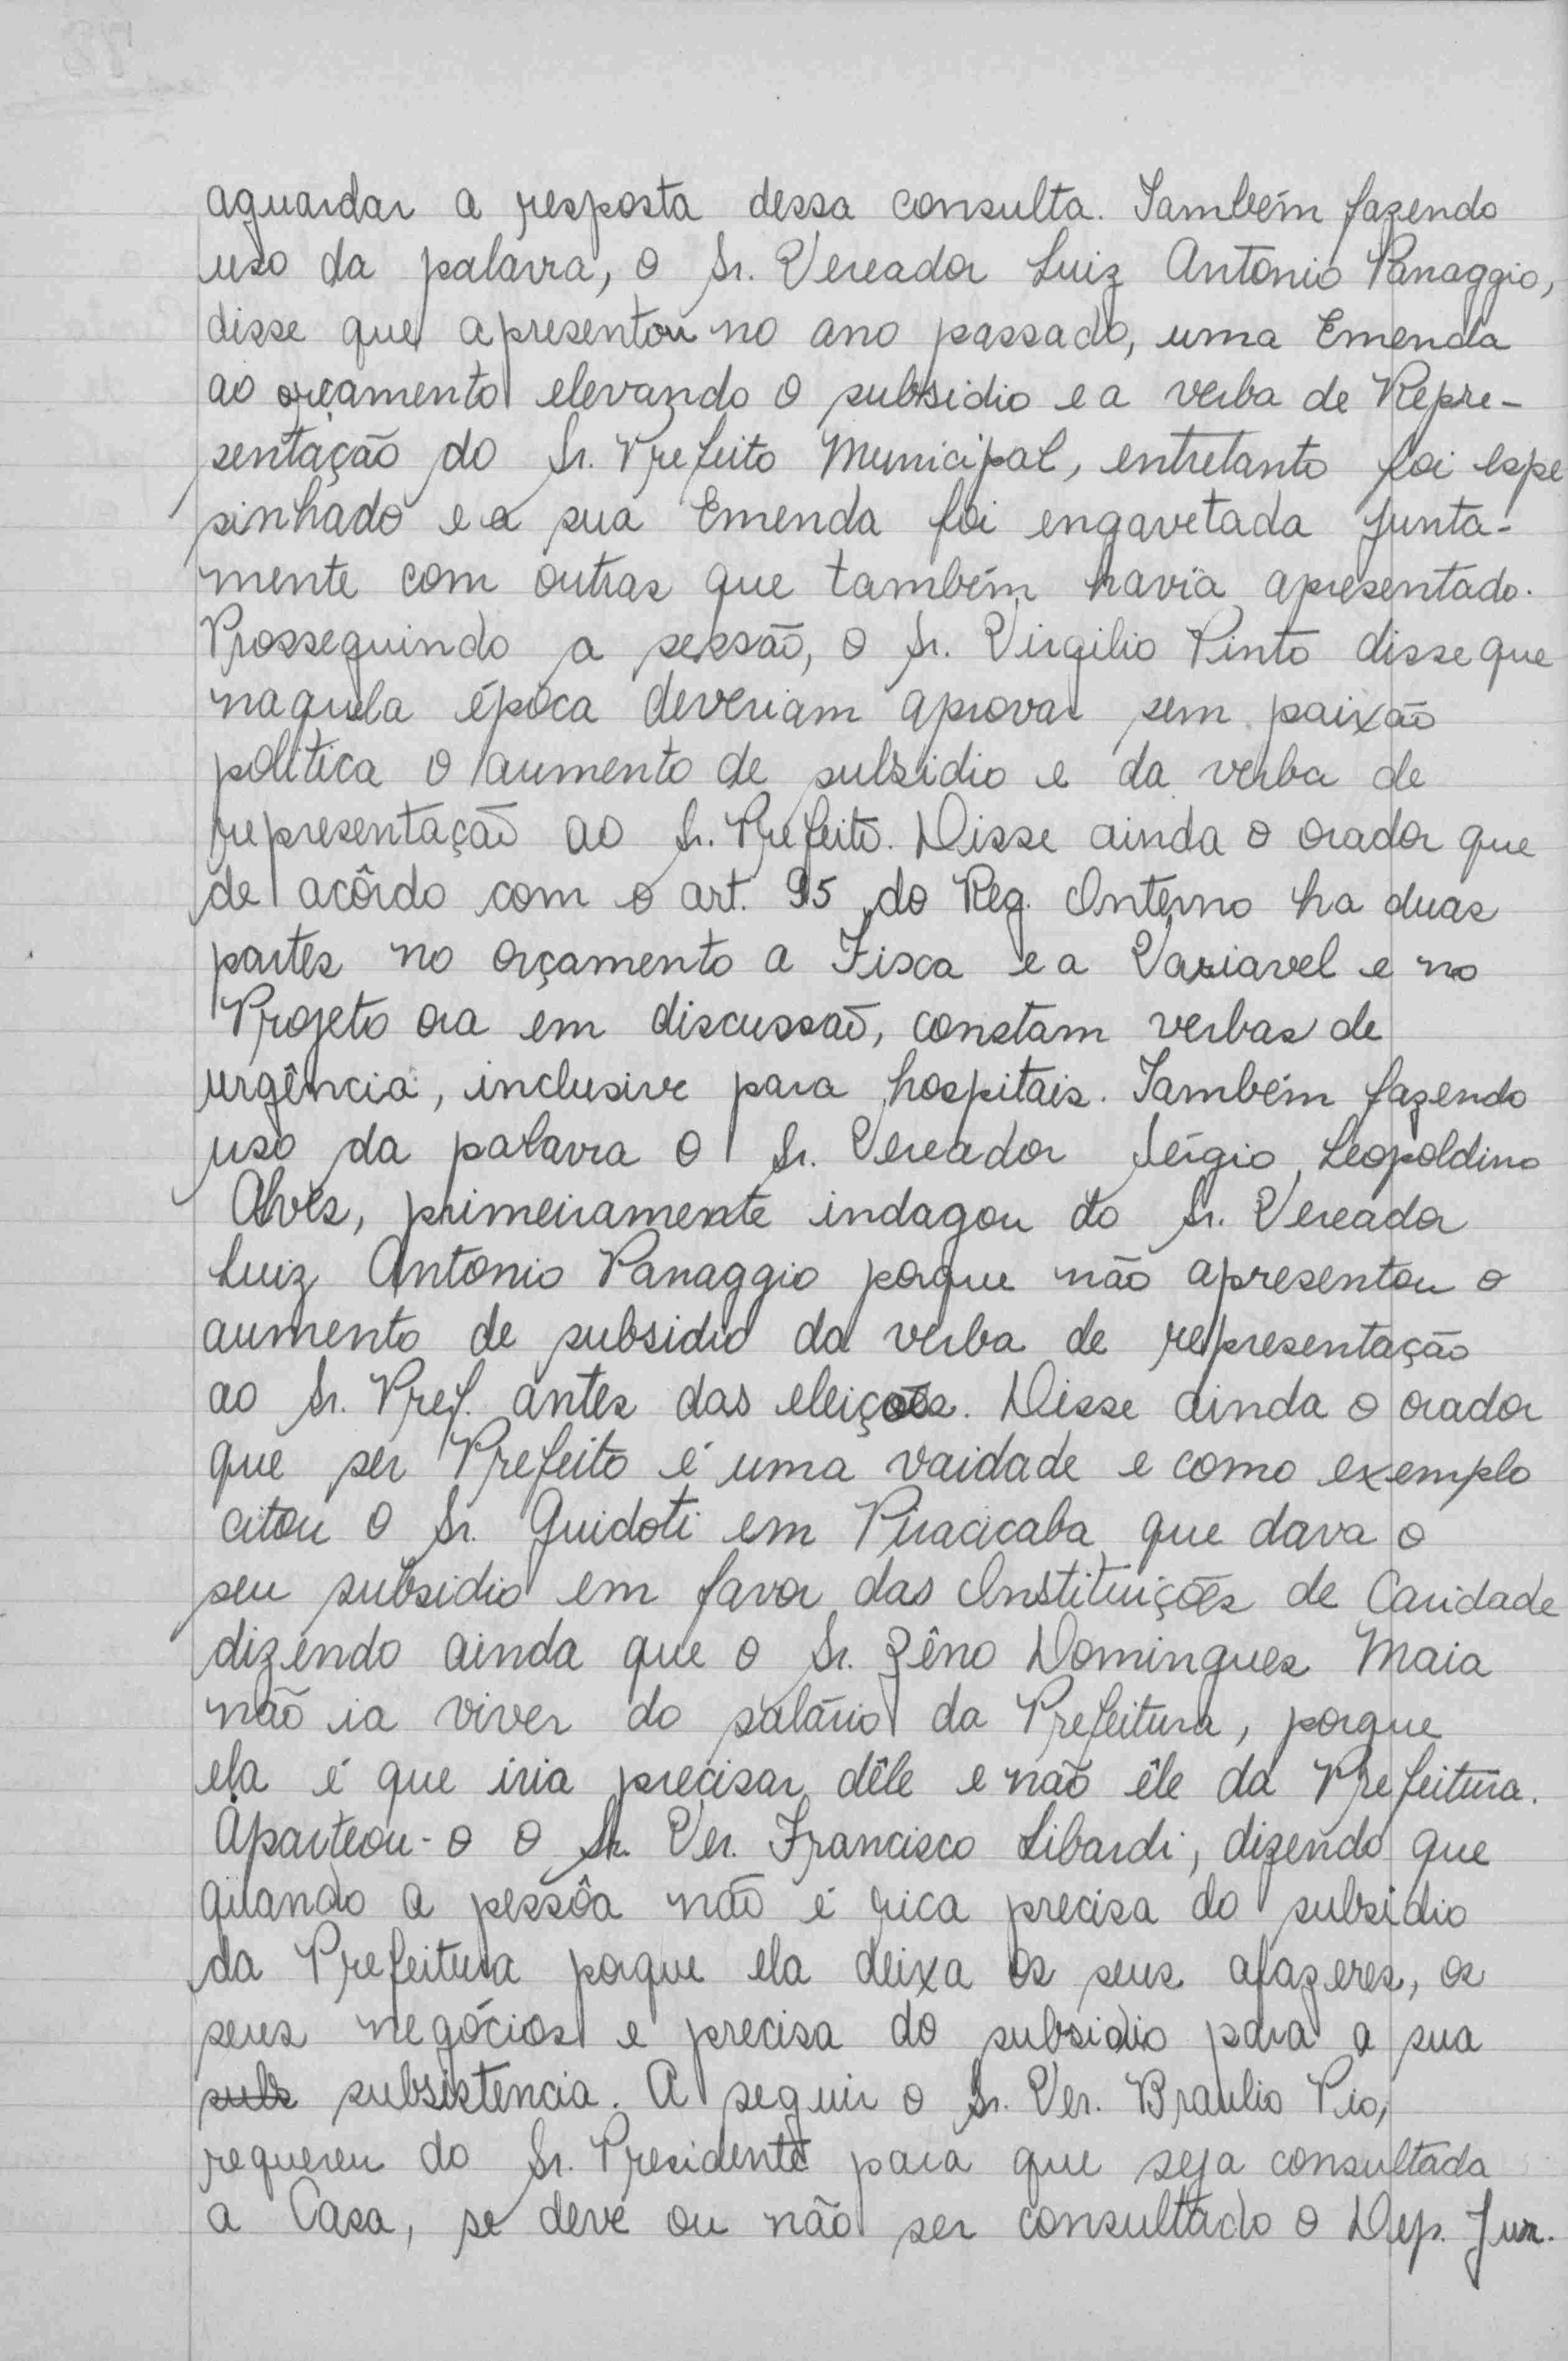 aguardar a resposta dessa consulta. Também fazendo
uso da palavra, o Sr. Vereador Luiz Antonio Panaggio,
disse que apresentou no ano passado, uma Emenda
ao orçamento elevando o subsidio e a verba de Repre-
sentação do Sr. Prefeito Municipal, entretanto foi espe
sinhado e a sua Emenda foi engavetada junta-
mente com outras que também havia apresentado.
Prosseguindo a sessão, o Sr. Virgilio Pinto disse que
naquela época deveriam aprovar sem paixão
politica o aumento de subsidio e da verba de
representação ao Sr. Prefeito. Disse ainda o orador que
de acôrdo com o art. 95 do Reg. Interno ha duas
partes no orçamento a Fisca e a Variavel e no
Projeto ora em discussão, constam verbas de
urgência, inclusive para hospitais. Também fazendo
uso da palavra o Sr. Vereador Sérgio Leopoldino
Alves, primeiramente indagou do Sr. Vereador
Luiz Antonio Panaggio porque não apresentou o
aumento de subsidio da verba de representação
ao Sr. Pref. antes das eleições. Disse ainda o orador
que ser Prefeito é uma vaidade e como exemplo
citou o Sr. Guidoti em Piracicaba que dava o
seu subsidio em favor das Instituições de Caridade
dizendo ainda que o Sr. Zêno Domingues Maia
não ia viver do salário da Prefeitura, porque
ela é que iria precisar dêle e não êle da Prefeitura.
Aparteou-o o Sr. Ver. Francisco Libardi, dizendo que
quando a pessôa não é rica precisa do subsidio
da Prefeitura porque ela deixa os seus afazeres, os
seus negócios e precisa do subsidio para a sua
subs subsistencia. A seguir o Sr. Ver. Braulio Pio,
requereu do Sr. Presidente para que seja consultada
a Casa, se deve ou não ser consultado o Dep. Jur.